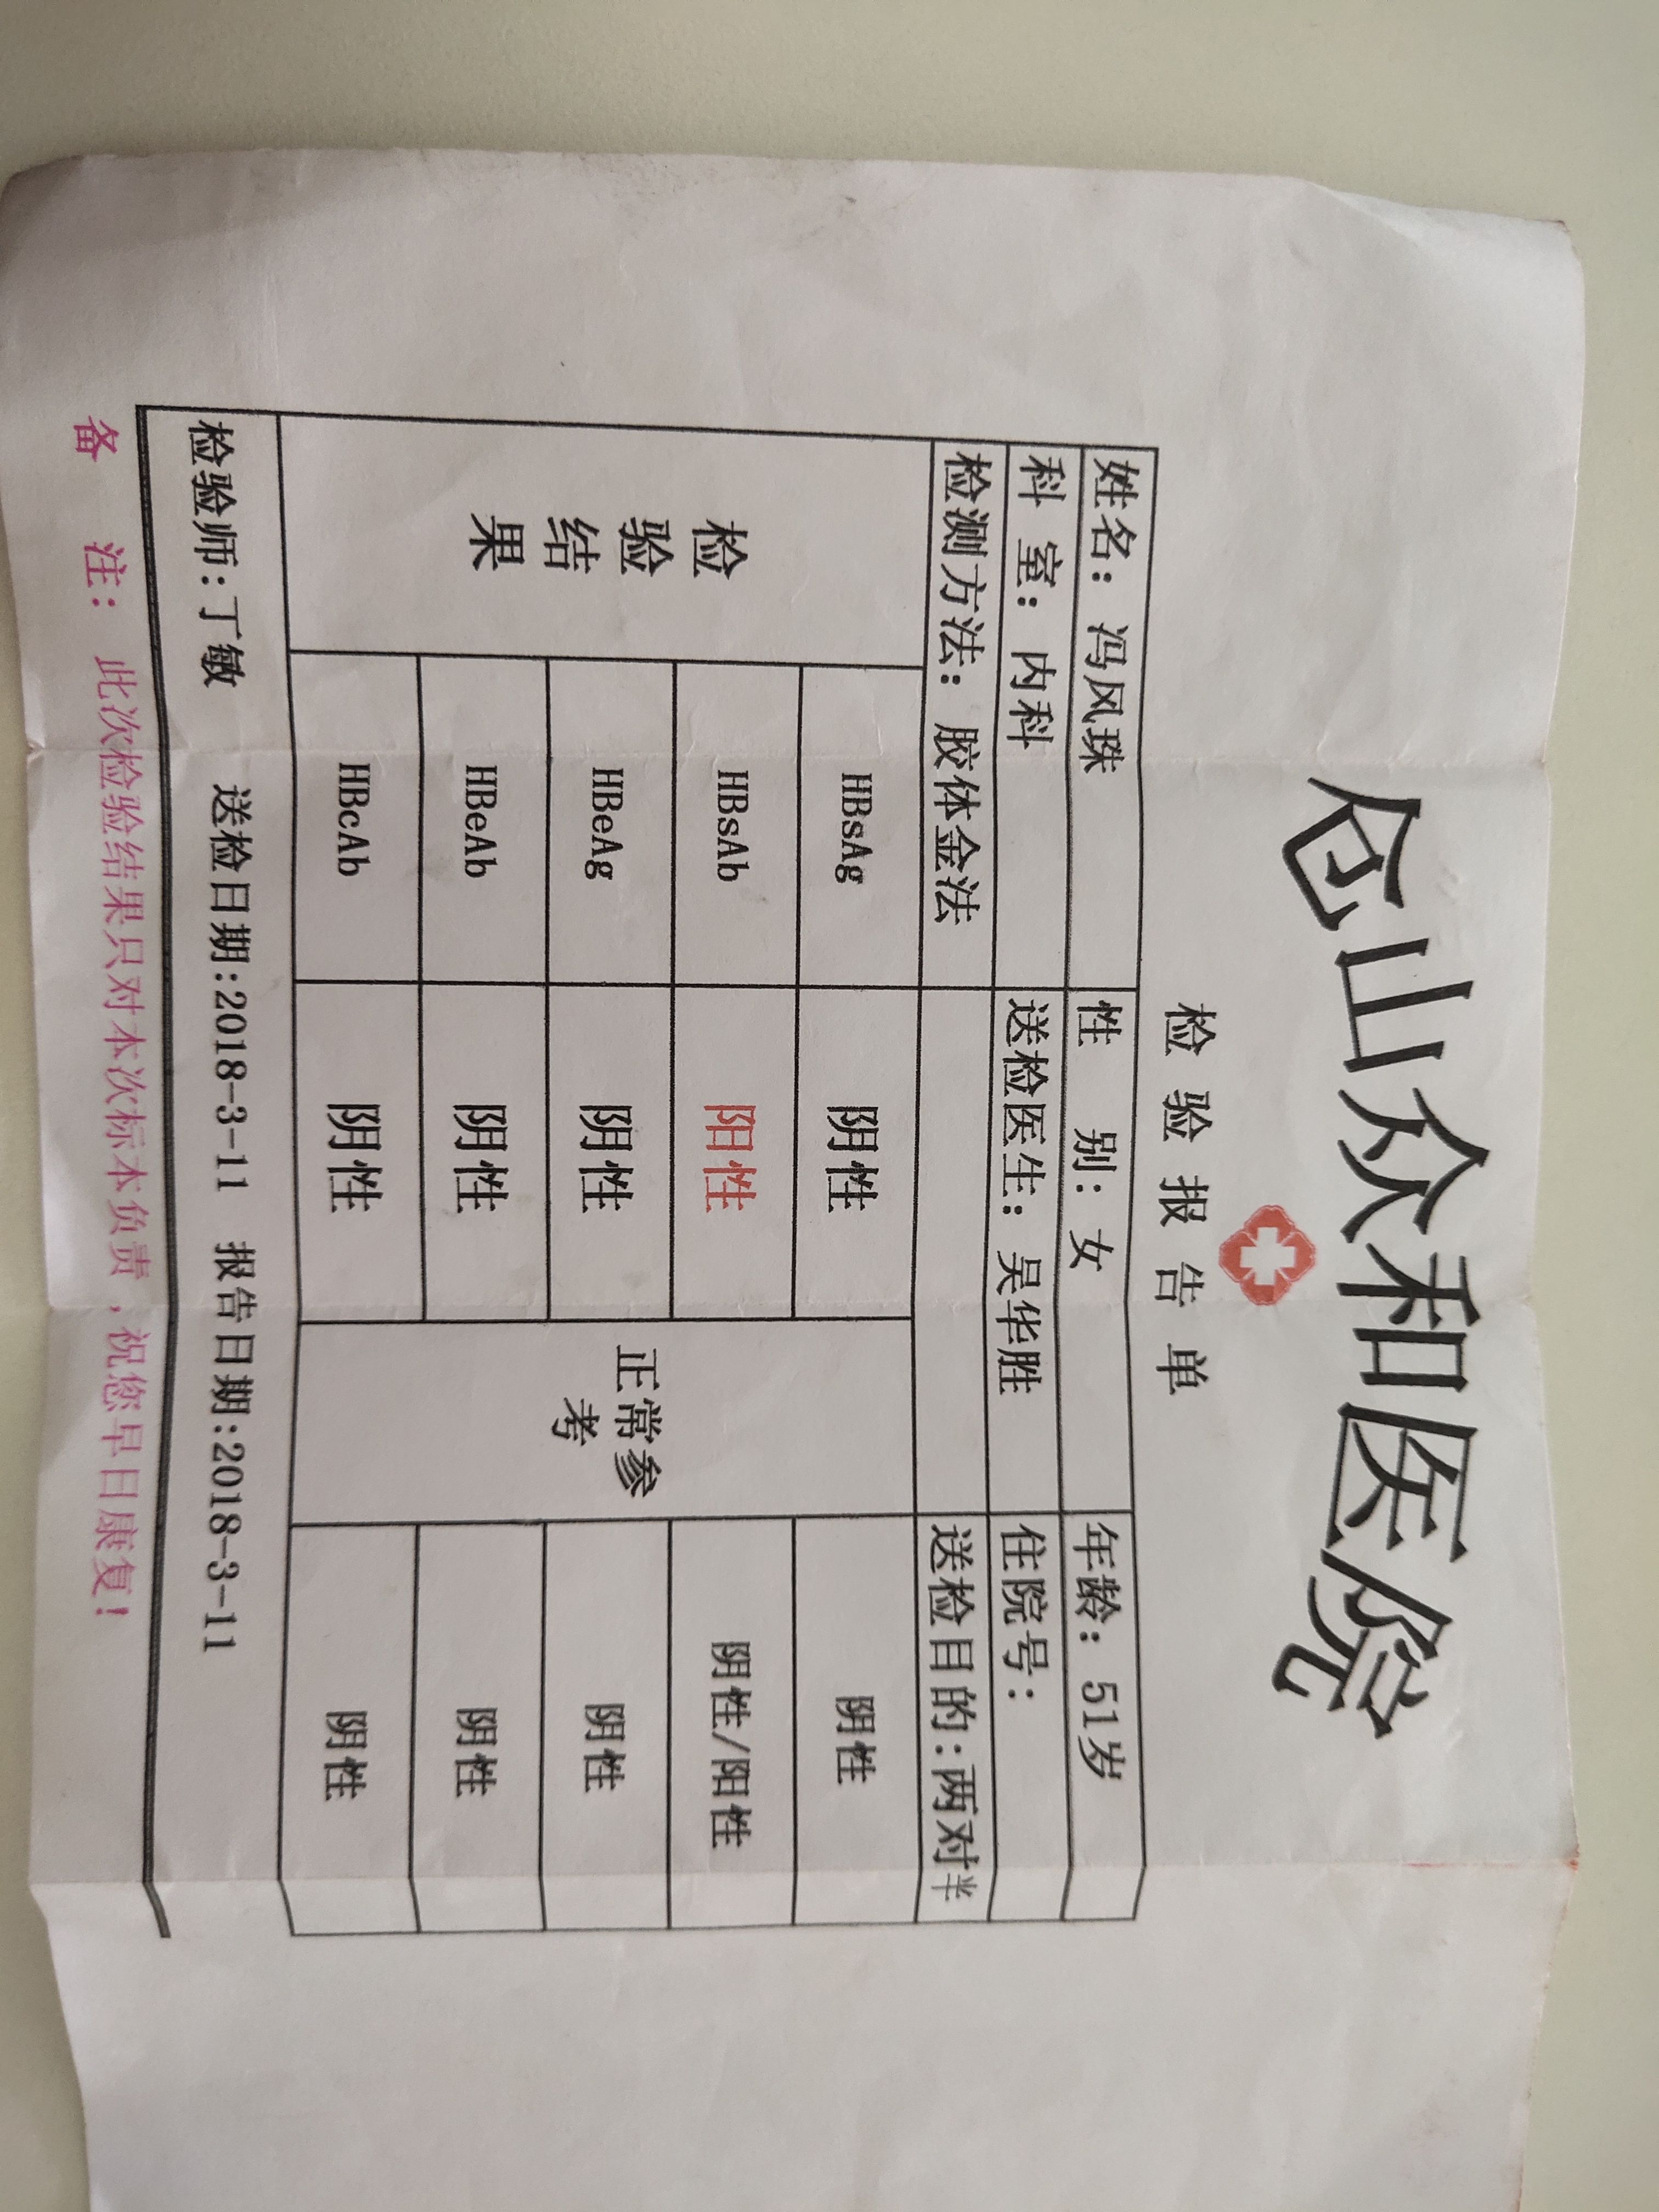 仓山众和医院
检验报告单
姓名：冯风珠 性 别：女 年龄：51岁
科 室：内科 送检医生：吴华胜 住院号：
检测方法：胶体金法 送检目的:两对半
检验结果
HBsAg 阴性 正常参考 阴性
HBsAb 阳性 阴性/阳性
HBeAg 阴性 阴性
HBeAb 阴性 阴性
HBcAb 阴性 阴性
检验师:丁敏 送检日期:2018-3-11 报告日期:2018-3-11
备 注：此次检验结果只对本次标本负责，祝您早日康复!